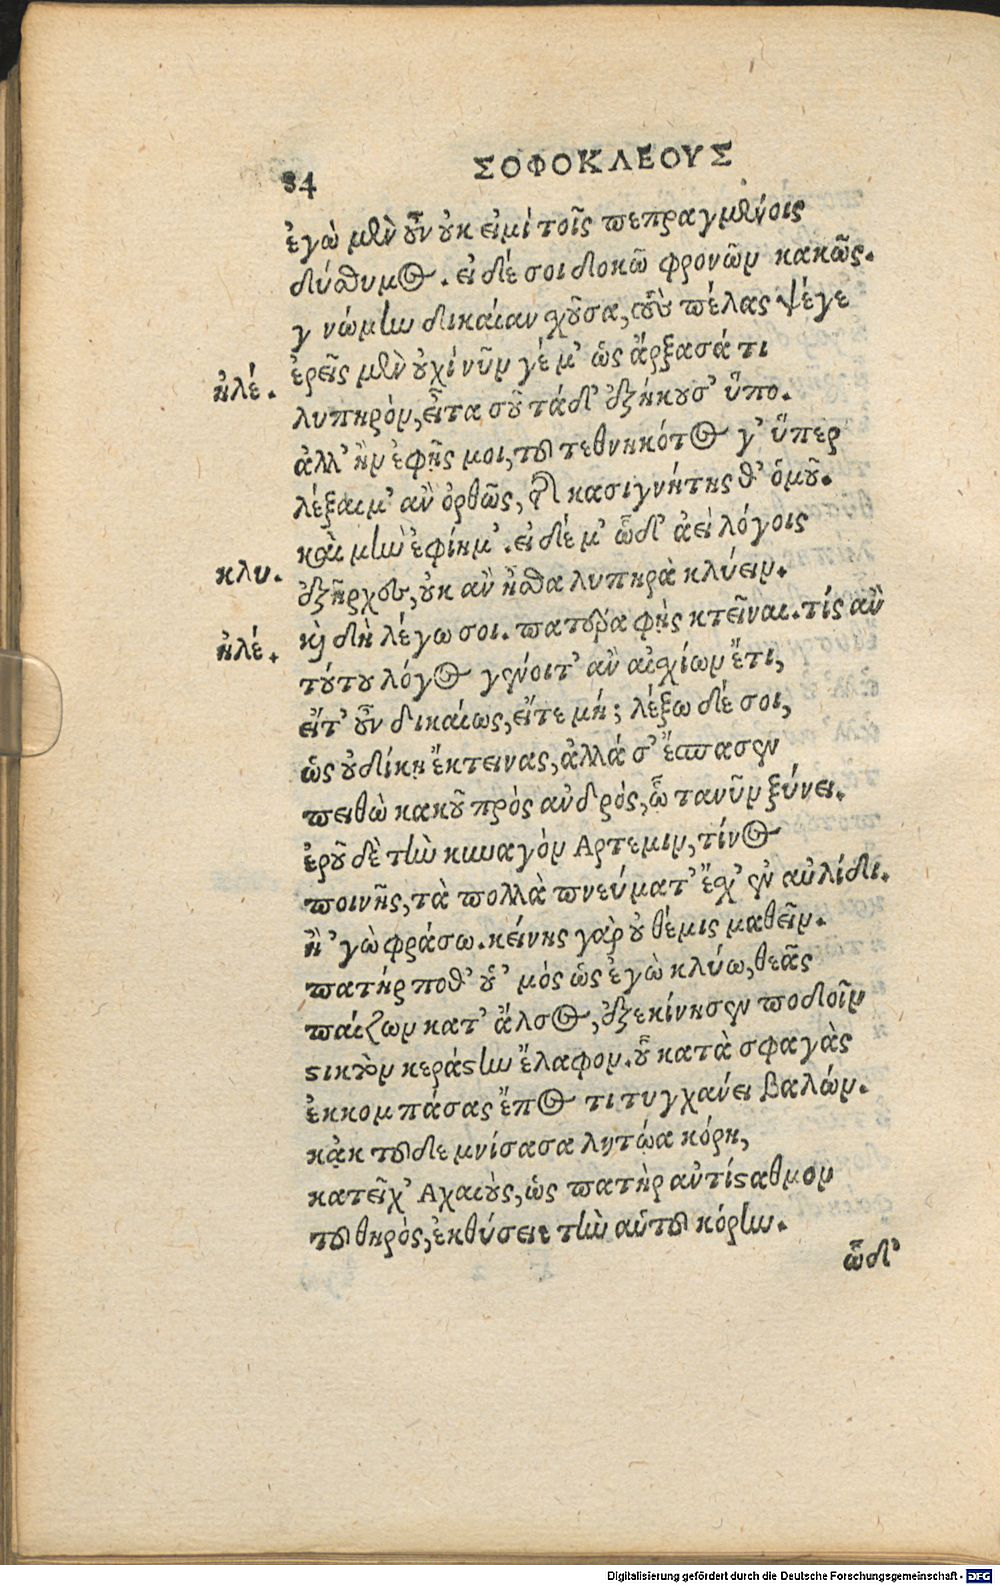 84
ΣΟΦΟΚΛΕΟΥΣ
ἐγὼ μὲν οὖν οὐκ εἰμὶ τοῖς πεπραγμένοις
δύσθυμος. εἰ δέ σοι δοκῶ φρονῶν κακῶς.
γνώμην δικαίαν χοῦσα, τοὺς πέλας ψέγε
ἠλέ. ἐρεῖς μὲν οὐχὶ νῦν γέ μ' ὡς ἄρξασά τι
λυπηρὸν, εἶτα σοῦ τάδ' ἐξήκουσ' ὕπο.
ἀλλ' ἢν ἐφῇς μοι, τοῦ τεθνηκότος γ' ὕπερ
λέξαιμ' ἂν ὀρθῶς, τῆς κασιγνήτης θ' ὁμοῦ.
κλυ. καὶ μὴν ἐφίημ'. εἰ δέ μ' ὧδ' ἀεὶ λόγοις
ἐξῆρχες, οὐκ ἂν ἦσθα λυπηρὰ κλύειν.
ἠλέ. καὶ δὴ λέγω σοι. πατέρα φῂς κτεῖναι. τίς ἂν
τούτου λόγος γένοιτ' ἂν αἰσχίων ἔτι,
εἴτ' οὖν δικαίως, εἴτε μή; λέξω δέ σοι,
ὡς οὐ δίκῃ ἔκτεινας, ἀλλά σ' ἔσπασεν
πειθὼ κακοῦ πρὸς ανδρὸς, ᾧ τανῦν ξύνει.
ἐροῦ δὲ τὴν κυναγὸν Αρτεμιν, τίνος
ποινῆς, τὰ πολλὰ πνεύματ' ἔσχ' ἐν αὐλίδι.
ἢ 'γὼ φράσω. κείνης γὰρ οὐ θέμις μαθεῖν.
πατήρ ποθ' οὑ' μὸς ὡς ἐγὼ κλύω, θεᾶς
παίζων κατ' ἄλσος, ἐξεκίνησεν ποδοῖν
στικτὸν κεράστην ἔλαφον. οὗ κατὰ σφαγὰς
ἐκκομπάσας ἔπος τι τυγχανει βαλών.
κᾀκ τοῦδε μνίσασα λητῴα κόρη,
κατεῖχ' Αχαιοὺς, ὡς πατὴρ αὐτίσταθμον
τοῦ θηρὸς, ἐκθύσειε τὴν αὑτοῦ κόρην.
ὧδ'
Digitalisierung gefördert durch die Deutsche Forschungsgemeinschaft - DFG